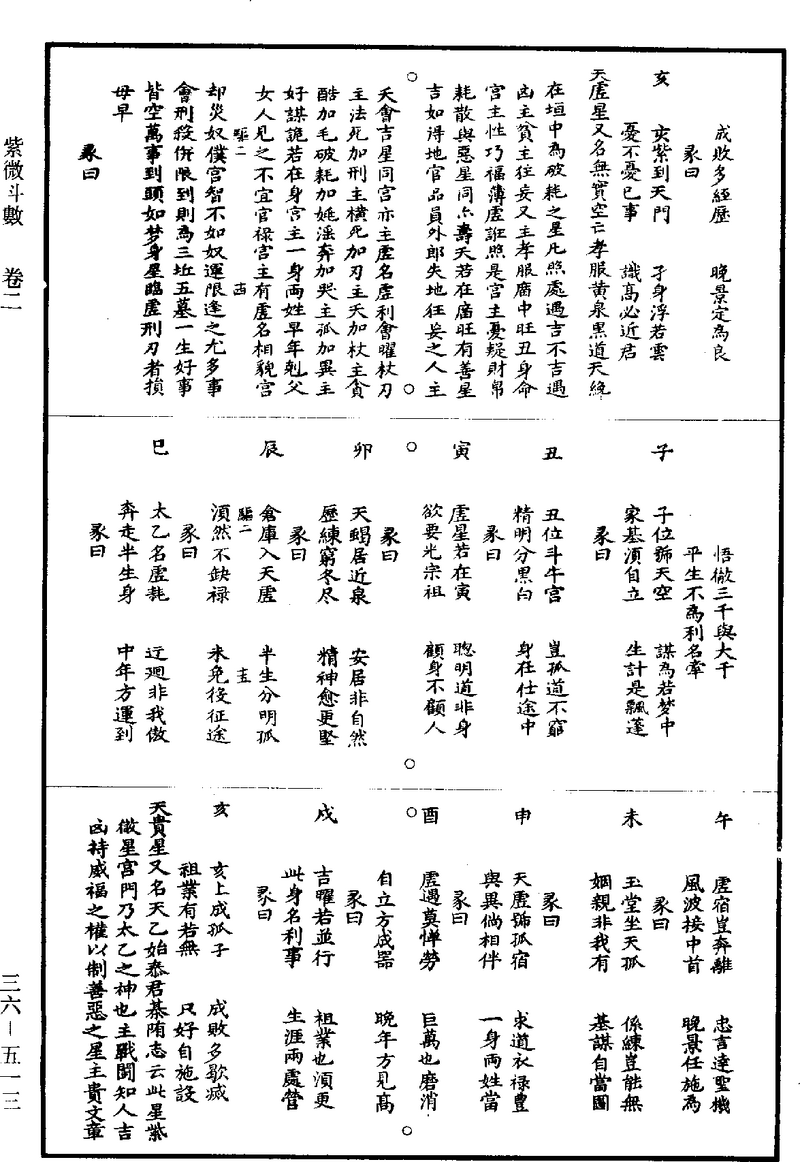 紫微斗數　卷二
三六－五一三
成敗多經歷　晚景定為良
彖曰
亥　亥紫到天門　孑身浮若雲
憂不憂己事　識高必近君
天虛星又名無實空亡孝服黃泉黑道天絕
在垣中為破耗之星凡照處遇吉不吉遇
凶主貧主狂妄又主孝服廟中旺丑身命
宮主性巧福薄虛誑照是宮主憂疑財帛
耗散與惡星同亦壽夭若在廟旺有善星
吉如得地官品員外郎失地狂妄之人主
夭會吉星同宮亦主虛名虛利會曜杖刃
主法死加刑主橫死加刃主夭加杖主貪
酷加毛破耗加姚滛奔加哭主孤加異主
好謀詭若在身宮主一身兩姓早年剋父
女人見之不宜官祿宮主有虛名相貌宮
驅二
却災奴僕宮智不如奴運限逢之尤多事
會刑殺併限到則為三坵五墓一生好事
皆空萬事到頭如梦身星臨虛刑刃者損
母早
彖曰
悟徹三千與大千
平生不為利名牽
子　子位號天空　謀為若梦中
家基湏自立　生計是飄蓬
彖曰
丑　丑位斗牛宮　豈孤道不窮
精明分黑白　身在仕途中
彖曰
寅　虛星若在寅　聰明道非身
欲要光宗祖　顧身不顧人
彖曰
卯　天蝎居近泉　安居非自然
歷練窮冬尽　精神愈更堅
彖曰
辰　倉庫入天虛　半生分明孤
驅二
湏然不缺祿　未免後征途
彖曰
巳　太乙名虛耗　迍迴非我傲
奔走半生身　中年方運到
彖曰
午　虛宿豈奔離　忠言達聖機
風波接中首　晚景任施為
彖曰
未　玉堂坐天孤　係練豈能無
姻親非我有　基謀自當圖
彖曰
申　天虛號孤宿　求道衣祿豐
與異倘相伴　一身兩姓當
彖曰
酉　虛遇莫憚勞　巨萬也磨消
自立方成器　晚年方見高
彖曰
戌　吉曜若並行　祖業也湏更
此身名利事　生涯兩處營
彖曰
亥　亥上成孤子　成敗多歇滅
祖業有若無　只好自施設
天貴星又名天乙始泰君綦隋志云此星紫
微星宮門乃太乙之神也主戰鬪知人吉
凶持威福之權以制善惡之星主貴文章